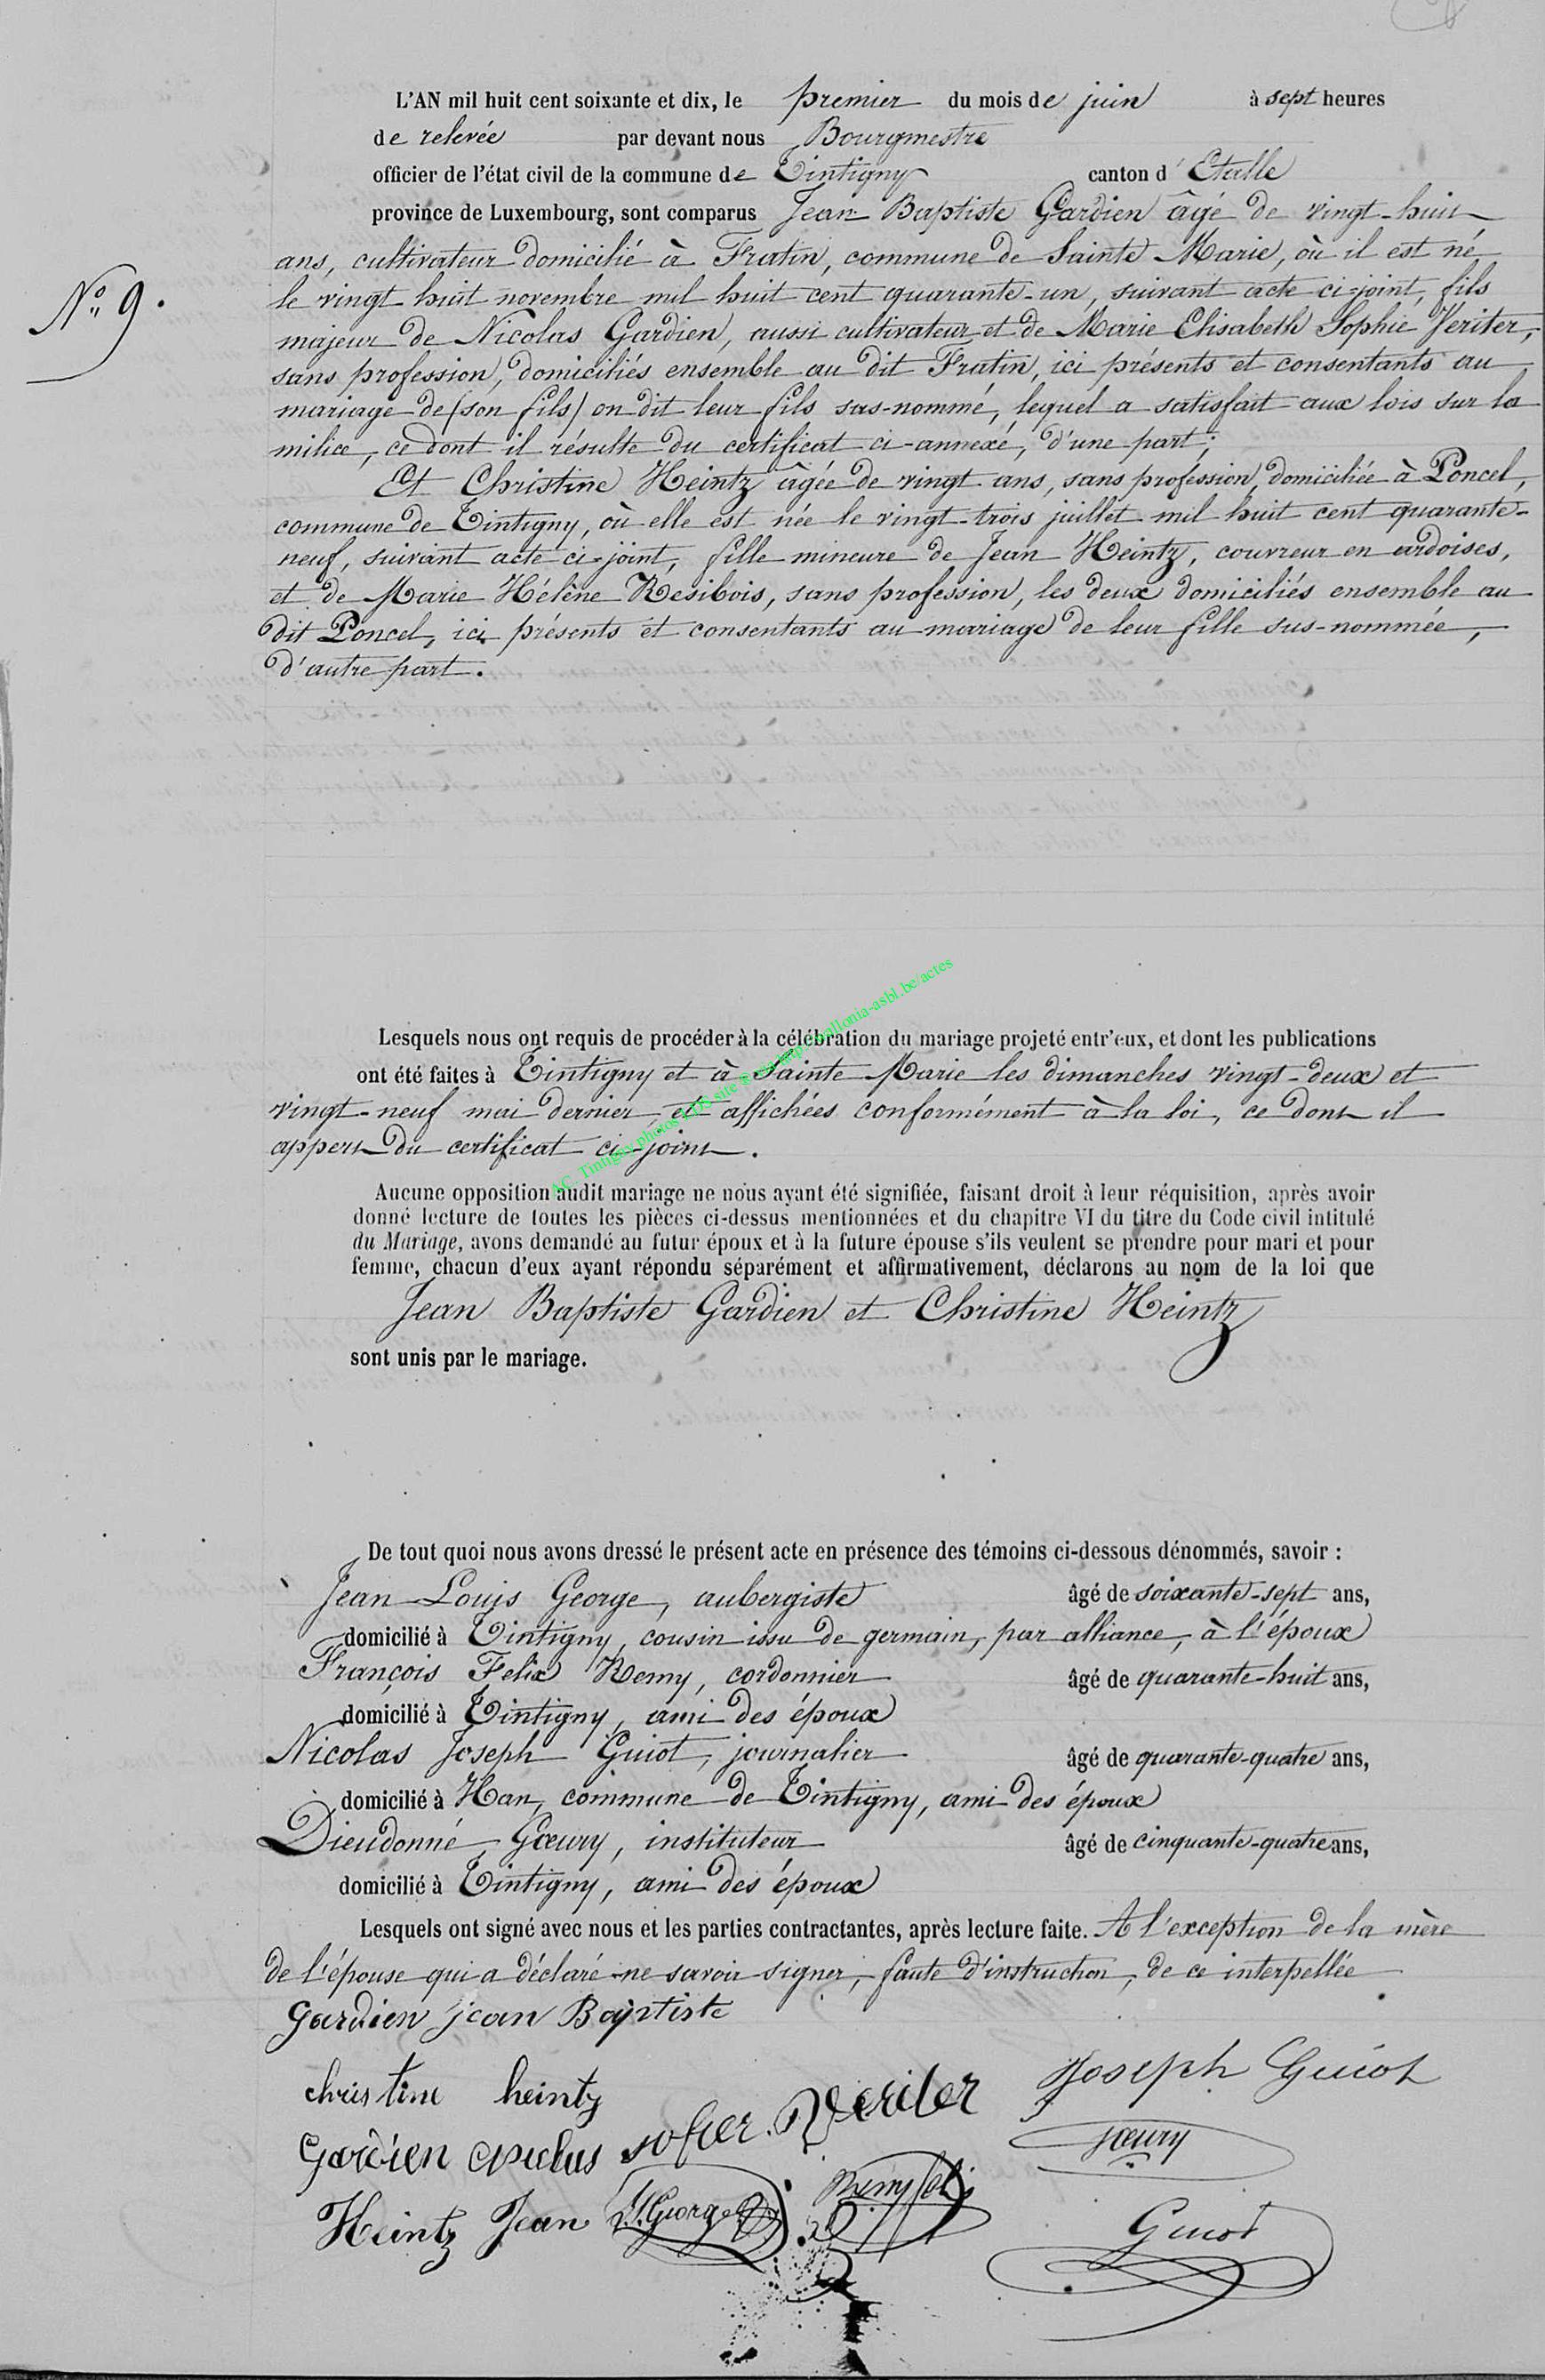 L'AN mil huit cent soixante et dix, le premier du mois de juin à sept heures
de relevée par devant nous Bourgmestre
officier de l'état civil de la commune de Tintigny canton d' Etalle
province de Luxembourg, sont comparus Jean Baptiste Gardien âgé de vingt-huit
ans, cultivateur domicilié à Fratin, commune de Sainte Marie, où il est né
N° 9.
le vingt huit novembre mil huit cent quarante-un, suivant acte ci-joint, fils
majeur de Nicolas Gardien, aussi cultivateur et de Marie Elisabeth Sophie Veriter,
sans profession, domiciliés ensemble au dit Fratin, ici présents et consentants au
mariage de (son fils) on dit leur fils sus-nommé, lequel a satisfait aux lois sur la
milice, ce dont il résulte du certificat ci-annexé, d'une part;
Et Christine Heintz âgée de vingt ans, sans profession, domiciliée à Poncel,
commune de Tintigny, où elle est née le vingt-trois juillet mil huit cent quarante-
neuf, suivant acte ci-joint, fille mineure de Jean Heintz, couvreur en ardoises,
et de Marie Hélène Resibois, sans profession, les deux domiciliés ensemble au
dit Poncel, ici présents et consentants au mariage de leur fille sus-nommée,
d'autre part.
Lesquels nous ont requis de procéder à la célébration du mariage projeté entr'eux, et dont les publications
ont été faites à Tintigny et à Sainte Marie les dimanches vingt-deux et
vingt-neuf mai dernier, et affichées conformément à la loi, ce dont il
appert du certificat ci-joint.
AC. Tintigny photos LDS site wallonia-asbl.be/actes
Aucune opposition audit mariage ne nous ayant été signifiée, faisant droit à leur réquisition, après avoir
donné lecture de toutes les pièces ci-dessus mentionnées et du chapitre VI du titre du Code civil intitulé
du Mariage, avons demandé au futur époux et à la future épouse s'ils veulent se prendre pour mari et pour
femme, chacun d'eux ayant répondu séparément et affirmativement, déclarons au nom de la loi que
Jean Baptiste Gardien et Christine Heintz
sont unis par le mariage.
De tout quoi nous avons dressé le présent acte en présence des témoins ci-dessous dénommés, savoir :
Jean Louis George, aubergiste âgé de soixante-sept ans,
domicilié à Tintigny, cousin issu de germain, par alliance, à l'époux
François Felix Remy, cordonnier âgé de quarante-huit ans,
domicilié à Tintigny, ami des époux
Nicolas Joseph Guiot, journalier âgé de quarante-quatre ans,
domicilié à Han, commune de Tintigny, ami des époux
Dieudonné Gœury, instituteur âgé de cinquante-quatre ans,
domicilié à Tintigny, ami des époux
Lesquels ont signé avec nous et les parties contractantes, après lecture faite. A l'exception de la mère
de l'épouse qui a déclaré ne savoir signer, faute d'instruction, de ce interpellée
Gardien jean Baptiste
christine heintz Joseph Guiot
Gardien sofier Veriter gœury
Heintz Jean J.L. George Remy felix Guiot